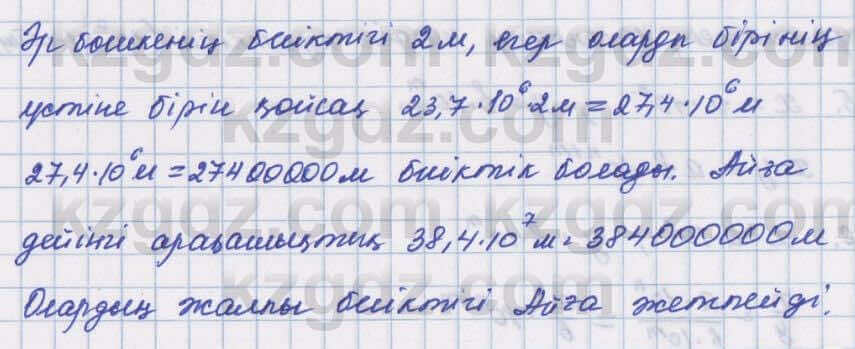 Әр бөшкенің биіктігі 2 м, егер оларды бірінің
үстіне бірін қойсақ 23,7·10⁶·2м=27,4·10⁶м
27,4·10⁶м=27400000м биіктік болады. Айға
дейінгі арақашықтық 38,4·10⁷м=384000000м
Олардың жалпы биіктігі Айға жетпейді.
kzgdz.com